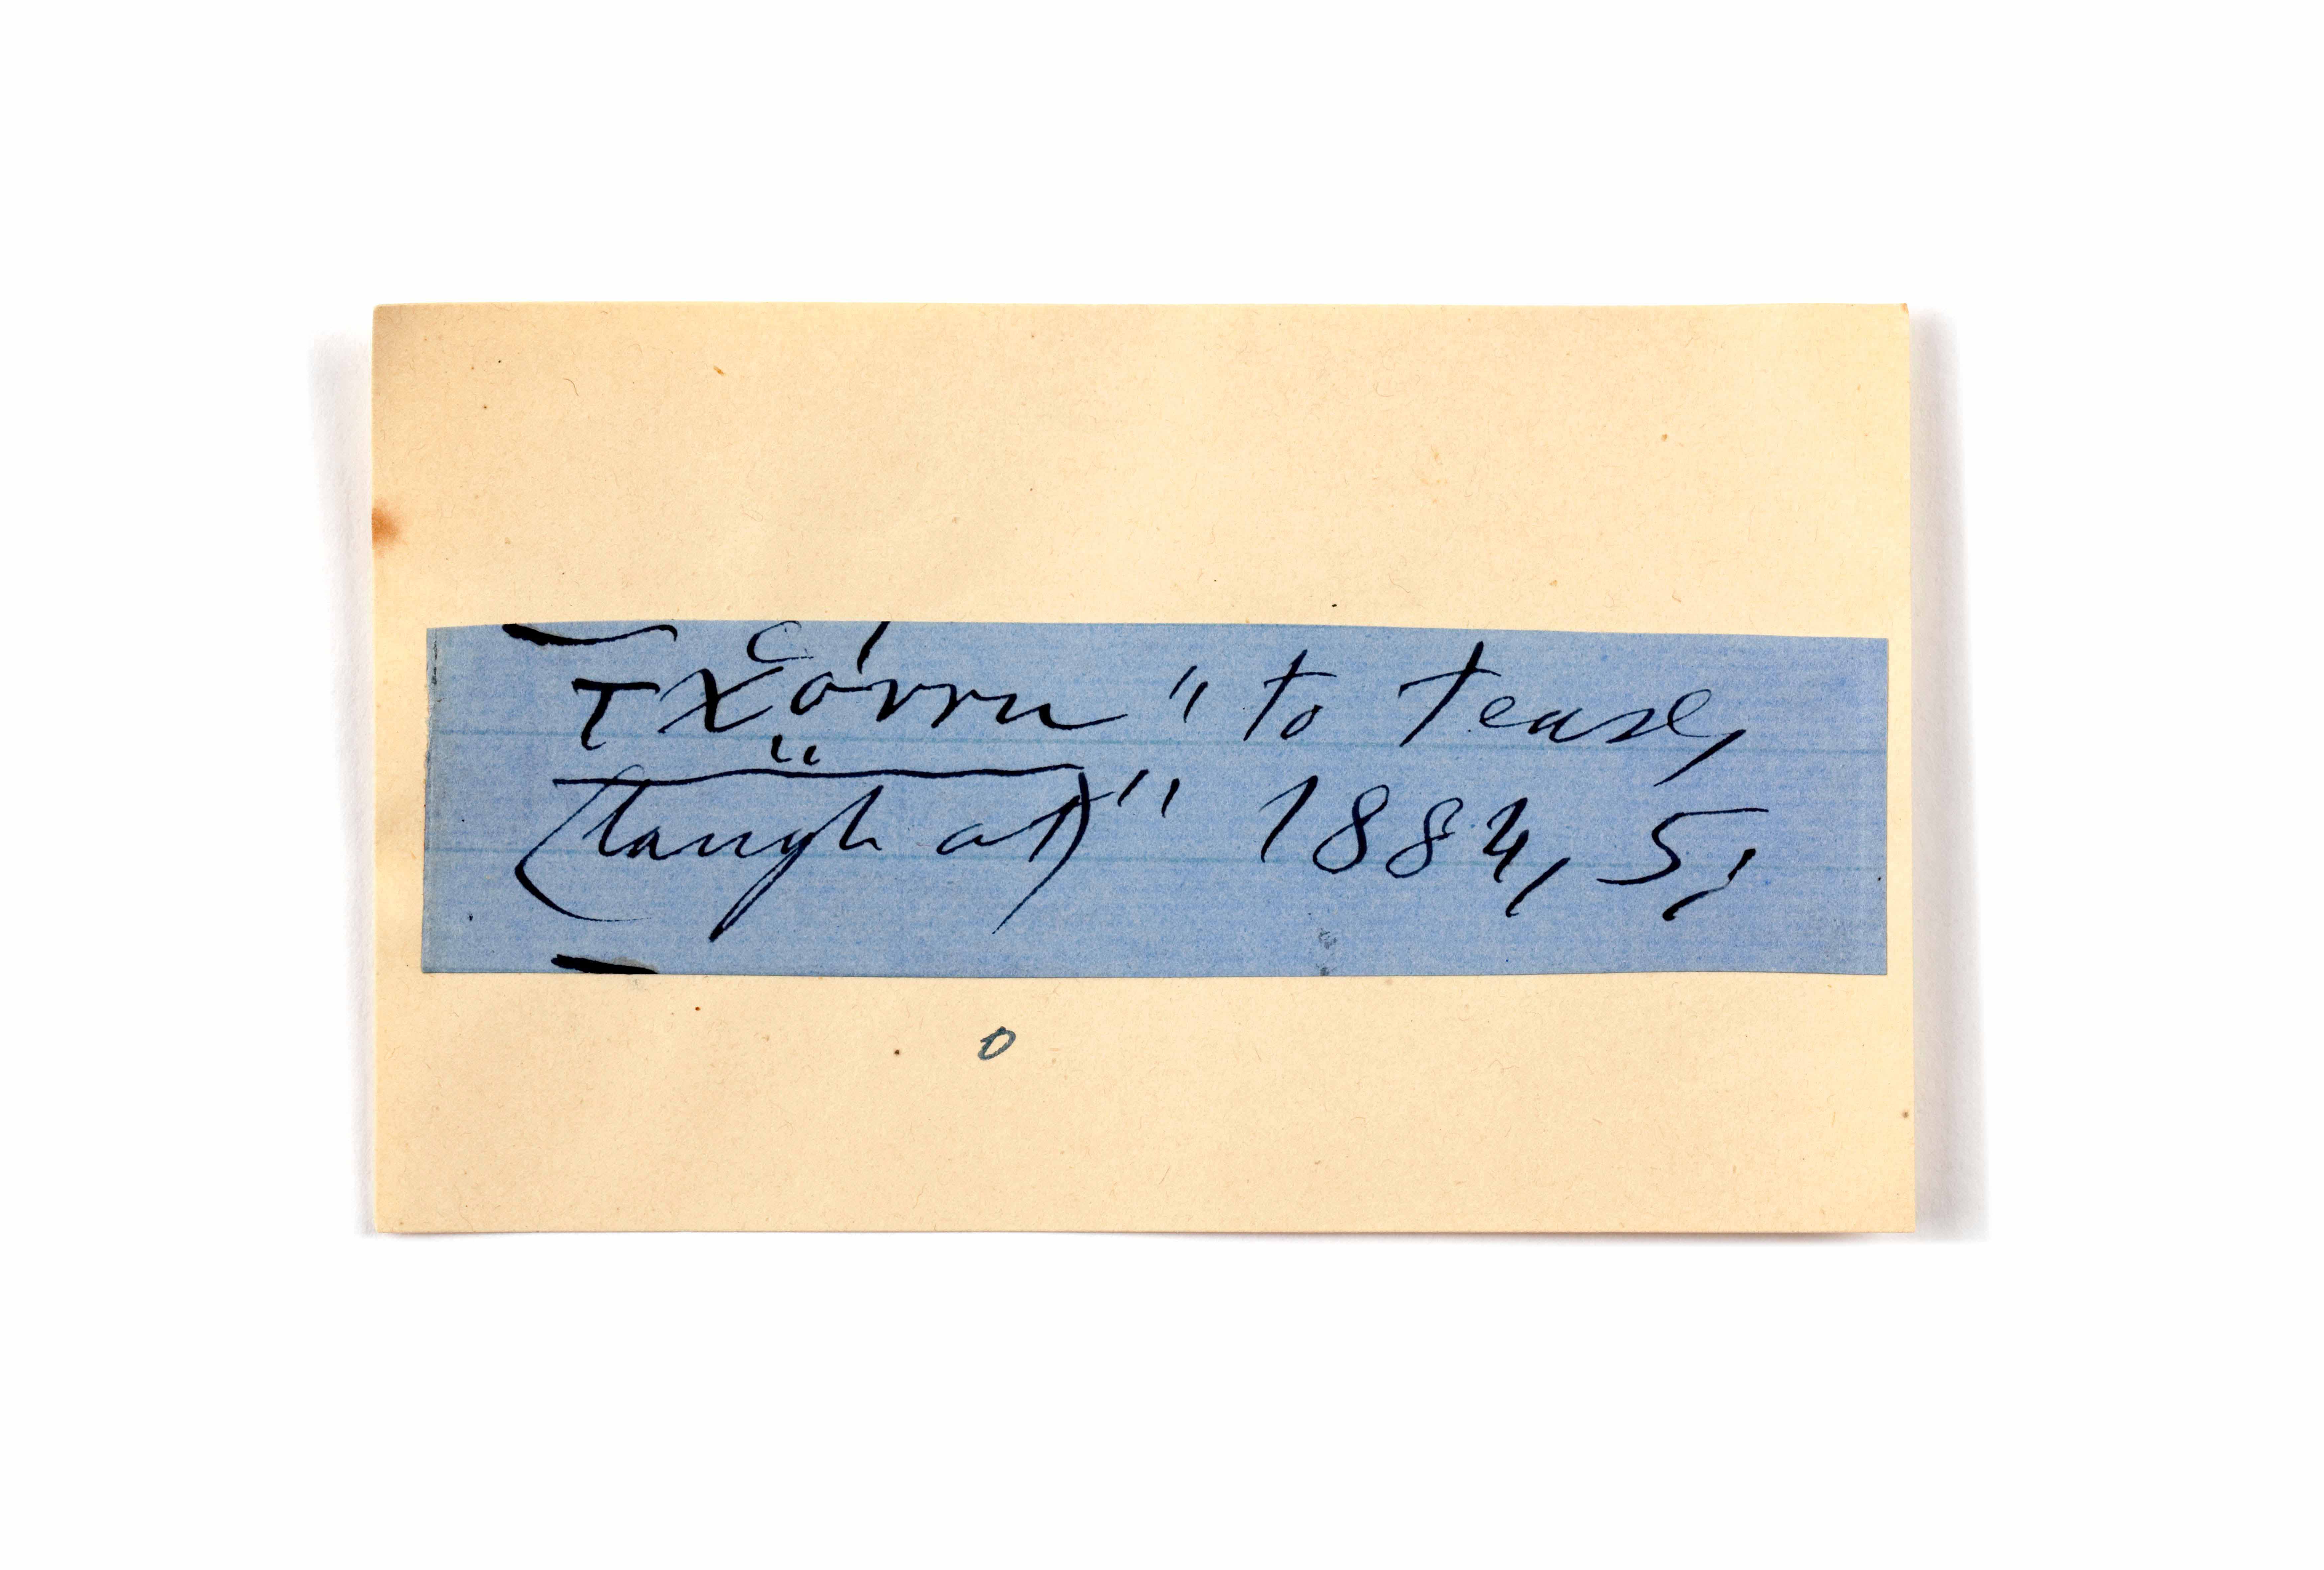 "to tease,
(laugh at)" 1884, 5;
0